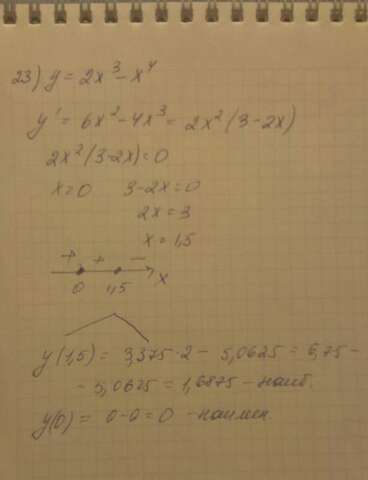 23) y = 2x³ - x⁴
y' = 6x² - 4x³ = 2x²(3 - 2x)
2x²(3-2x) = 0
x = 0 3 - 2x = 0
2x = 3
x = 1,5
+ + -
0 1,5 x
y(1,5) = 3,375 · 2 - 5,0625 = 6,75 -
- 5,0625 = 1,6875 - наиб.
y(0) = 0 - 0 = 0 - наимен.